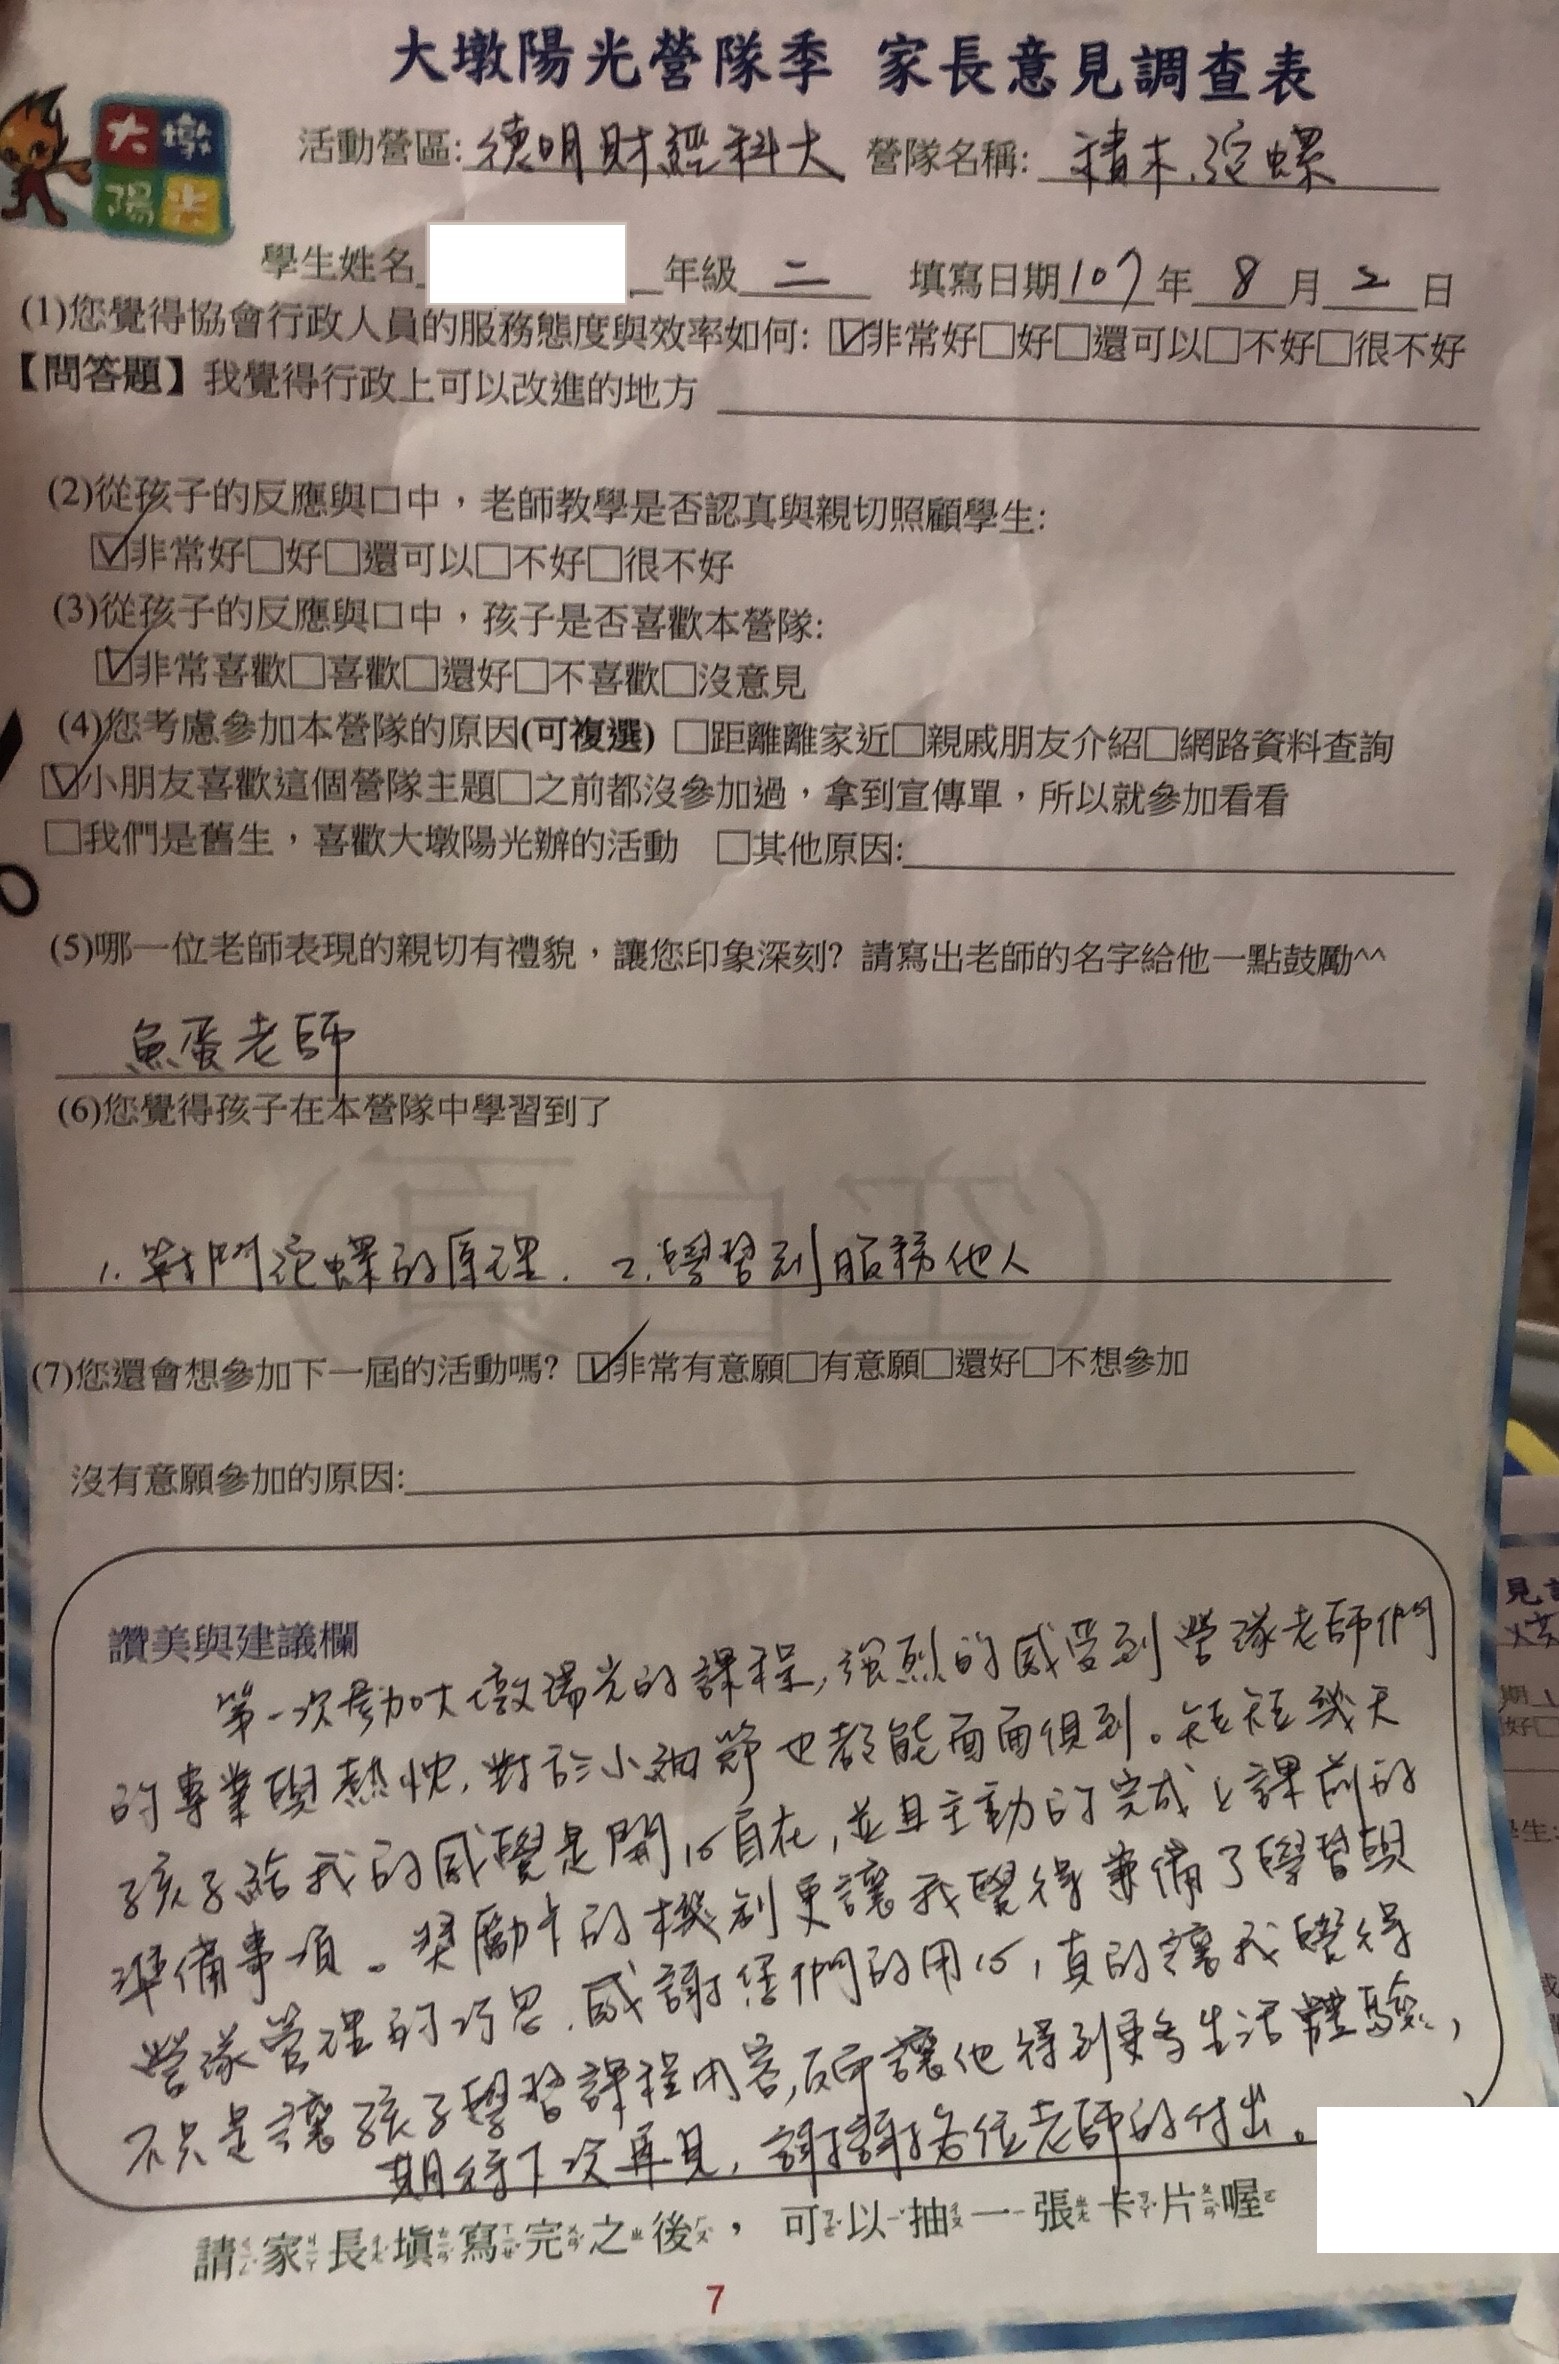 大墩陽光營隊季 家長意見調查表
大墩
陽光
活動營區:德明財經科大 營隊名稱:積木.陀螺
學生姓名 年級二 填寫日期107年8月2日
(1)您覺得協會行政人員的服務態度與效率如何: ☑非常好□好□還可以□不好□很不好
【問答題】我覺得行政上可以改進的地方
(2)從孩子的反應與口中，老師教學是否認真與親切照顧學生:
☑非常好□好□還可以□不好□很不好
(3)從孩子的反應與口中，孩子是否喜歡本營隊:
☑非常喜歡□喜歡□還好□不喜歡□沒意見
(4)您考慮參加本營隊的原因(可複選) □距離離家近□親戚朋友介紹□網路資料查詢
☑小朋友喜歡這個營隊主題□之前都沒參加過，拿到宣傳單，所以就參加看看
□我們是舊生，喜歡大墩陽光辦的活動 □其他原因:
(5)哪一位老師表現的親切有禮貌，讓您印象深刻? 請寫出老師的名字給他一點鼓勵^^
魚蛋老師
(6)您覺得孩子在本營隊中學習到了
1.戰鬥陀螺的原理. 2.學習到服務他人
(7)您還會想參加下一屆的活動嗎? ☑非常有意願□有意願□還好□不想參加
沒有意願參加的原因:
讚美與建議欄
第一次參加大墩陽光的課程,強烈的感受到營隊老師們
的專業與熱忱,對於小細節也都能面面俱到。短短幾天
孩子給我的感覺是開心自在,並且主動的完成上課前的
準備事項。獎勵卡的機制更讓我覺得兼備了學習與
營隊管理的巧思.感謝您們的用心,真的讓我覺得
不只是讓孩子學習課程內容,反而讓他得到更多生活體驗,
期待下次再見,謝謝各位老師的付出。
請家長填寫完之後，可以抽一張卡片喔
7